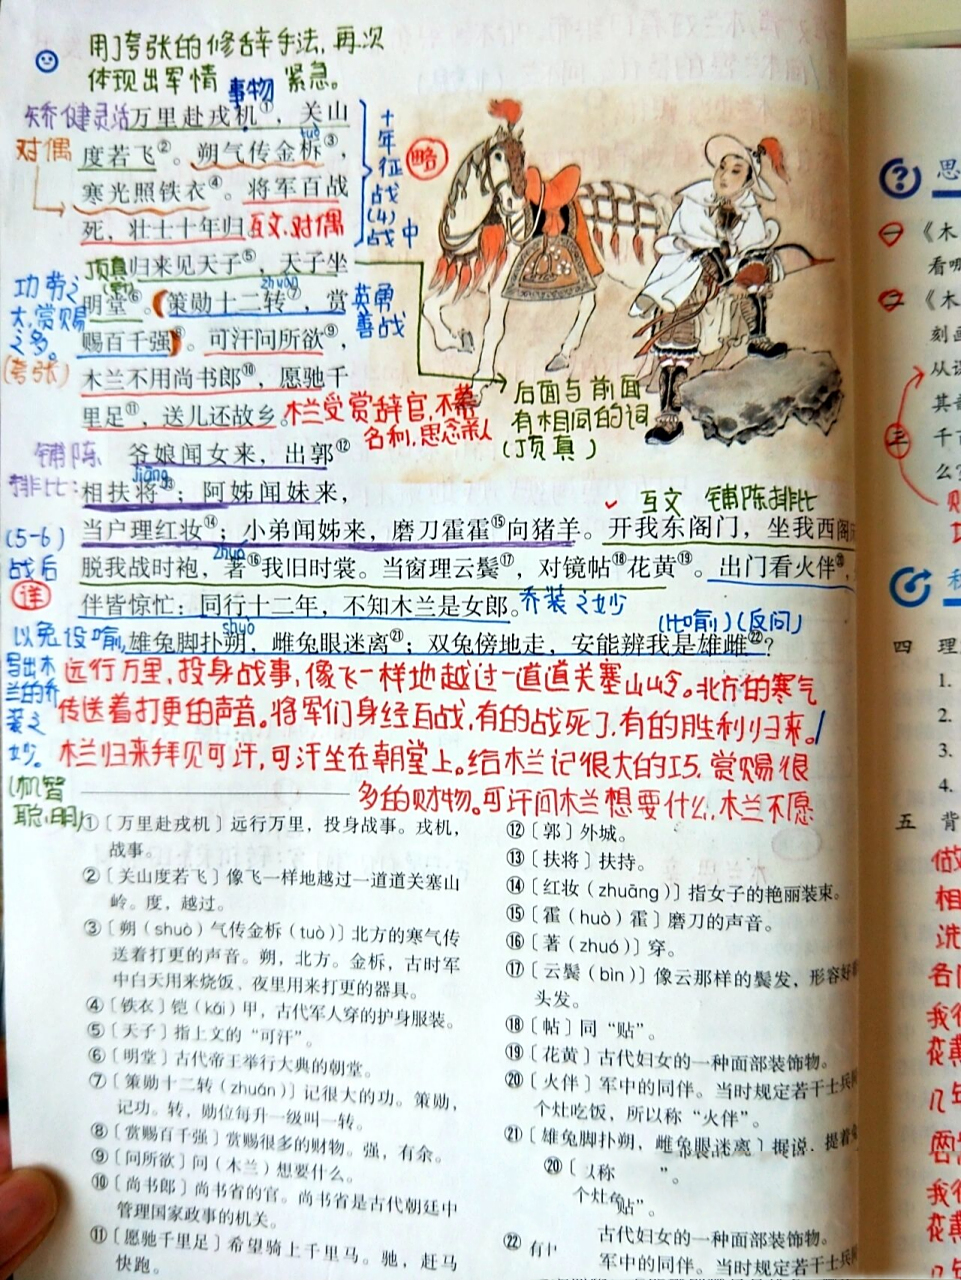 用了夸张的修辞手法,再次
体现出军情 紧急。
事物
矫健灵活
万里赴戎机①，关山
度若飞②。朔气传金柝③，
tuò
对偶
寒光照铁衣④。将军百战
死，壮士十年归
互文.对偶
十年征战(4)战中
略
顶真
归来见天子⑤，天子坐
明堂⑥。策勋十二转⑦，赏
zhuǎn
赐百千强⑧。可汗问所欲⑨，
木兰不用尚书郎⑩，愿驰千
里足⑪，送儿还故乡。
功劳之
大,赏赐
之多。
(夸张)
英勇
善战
木兰受赏辞官,不慕
名利,思念亲人
后面与前面
有相同的词
(顶真)
铺陈
排比:
爷娘闻女来，出郭⑫
jiāng
相扶将⑬；阿姊闻妹来，
互文 铺陈排比
当户理红妆⑭；小弟闻姊来，磨刀霍霍⑮向猪羊。开我东阁门，坐我西阁
zhuó
脱我战时袍，著⑯我旧时裳。当窗理云鬓⑰，对镜帖⑱花黄⑲。出门看火伴⑳，
伴皆惊忙：同行十二年，不知木兰是女郎。
乔装之妙
(5-6)
战后
详
(比喻)(反问)
shuò
雄兔脚扑朔，雌兔眼迷离㉑；双兔傍地走，安能辨我是雄雌㉒？
以兔设喻,
写出木
兰的乔
装之
妙。
(机智
聪明)
远行万里,投身战事,像飞一样地越过一道道关塞山岭。北方的寒气
传送着打更的声音。将军们身经百战,有的战死了,有的胜利归来。/
木兰归来拜见可汗,可汗坐在朝堂上。给木兰记很大的功,赏赐很
多的财物。可汗问木兰想要什么,木兰不愿
①〔万里赴戎机〕远行万里，投身战事。戎机，
战事。
②〔关山度若飞〕像飞一样地越过一道道关塞山
岭。度，越过。
③〔朔（shuò）气传金柝（tuò）〕北方的寒气传
送着打更的声音。朔，北方。金柝，古时军
中白天用来烧饭、夜里用来打更的器具。
④〔铁衣〕铠（kǎi）甲，古代军人穿的护身服装。
⑤〔天子〕指上文的“可汗”。
⑥〔明堂〕古代帝王举行大典的朝堂。
⑦〔策勋十二转（zhuǎn）〕记很大的功。策勋，
记功。转，勋位每升一级叫一转。
⑧〔赏赐百千强〕赏赐很多的财物。强，有余。
⑨〔问所欲〕问（木兰）想要什么。
⑩〔尚书郎〕尚书省的官。尚书省是古代朝廷中
管理国家政事的机关。
⑪〔愿驰千里足〕希望骑上千里马。驰，赶马
快跑。
⑫〔郭〕外城。
⑬〔扶将〕扶持。
⑭〔红妆（zhuāng）〕指女子的艳丽装束。
⑮〔霍（huò）霍〕磨刀的声音。
⑯〔著（zhuó）〕穿。
⑰〔云鬓（bìn）〕像云那样的鬓发，形容好看
头发。
⑱〔帖〕同“贴”。
⑲〔花黄〕古代妇女的一种面部装饰物。
⑳〔火伴〕军中的同伴。当时规定若干士兵
个灶吃饭，所以称“火伴”。
㉑〔雄兔脚扑朔，雌兔眼迷离〕据说，提着
⑳ 称 ”。
个灶
贴”。
古代妇女的一种面部装饰物。
㉒ 军中的同伴。当时规定若干士兵
思
一 《木
看哪
二 《木
刻画
从课
其
三 千
么？
四 理
1.
2.
3.
4.
五 背
做
相
洗
各
我
花黄
几
我
花黄